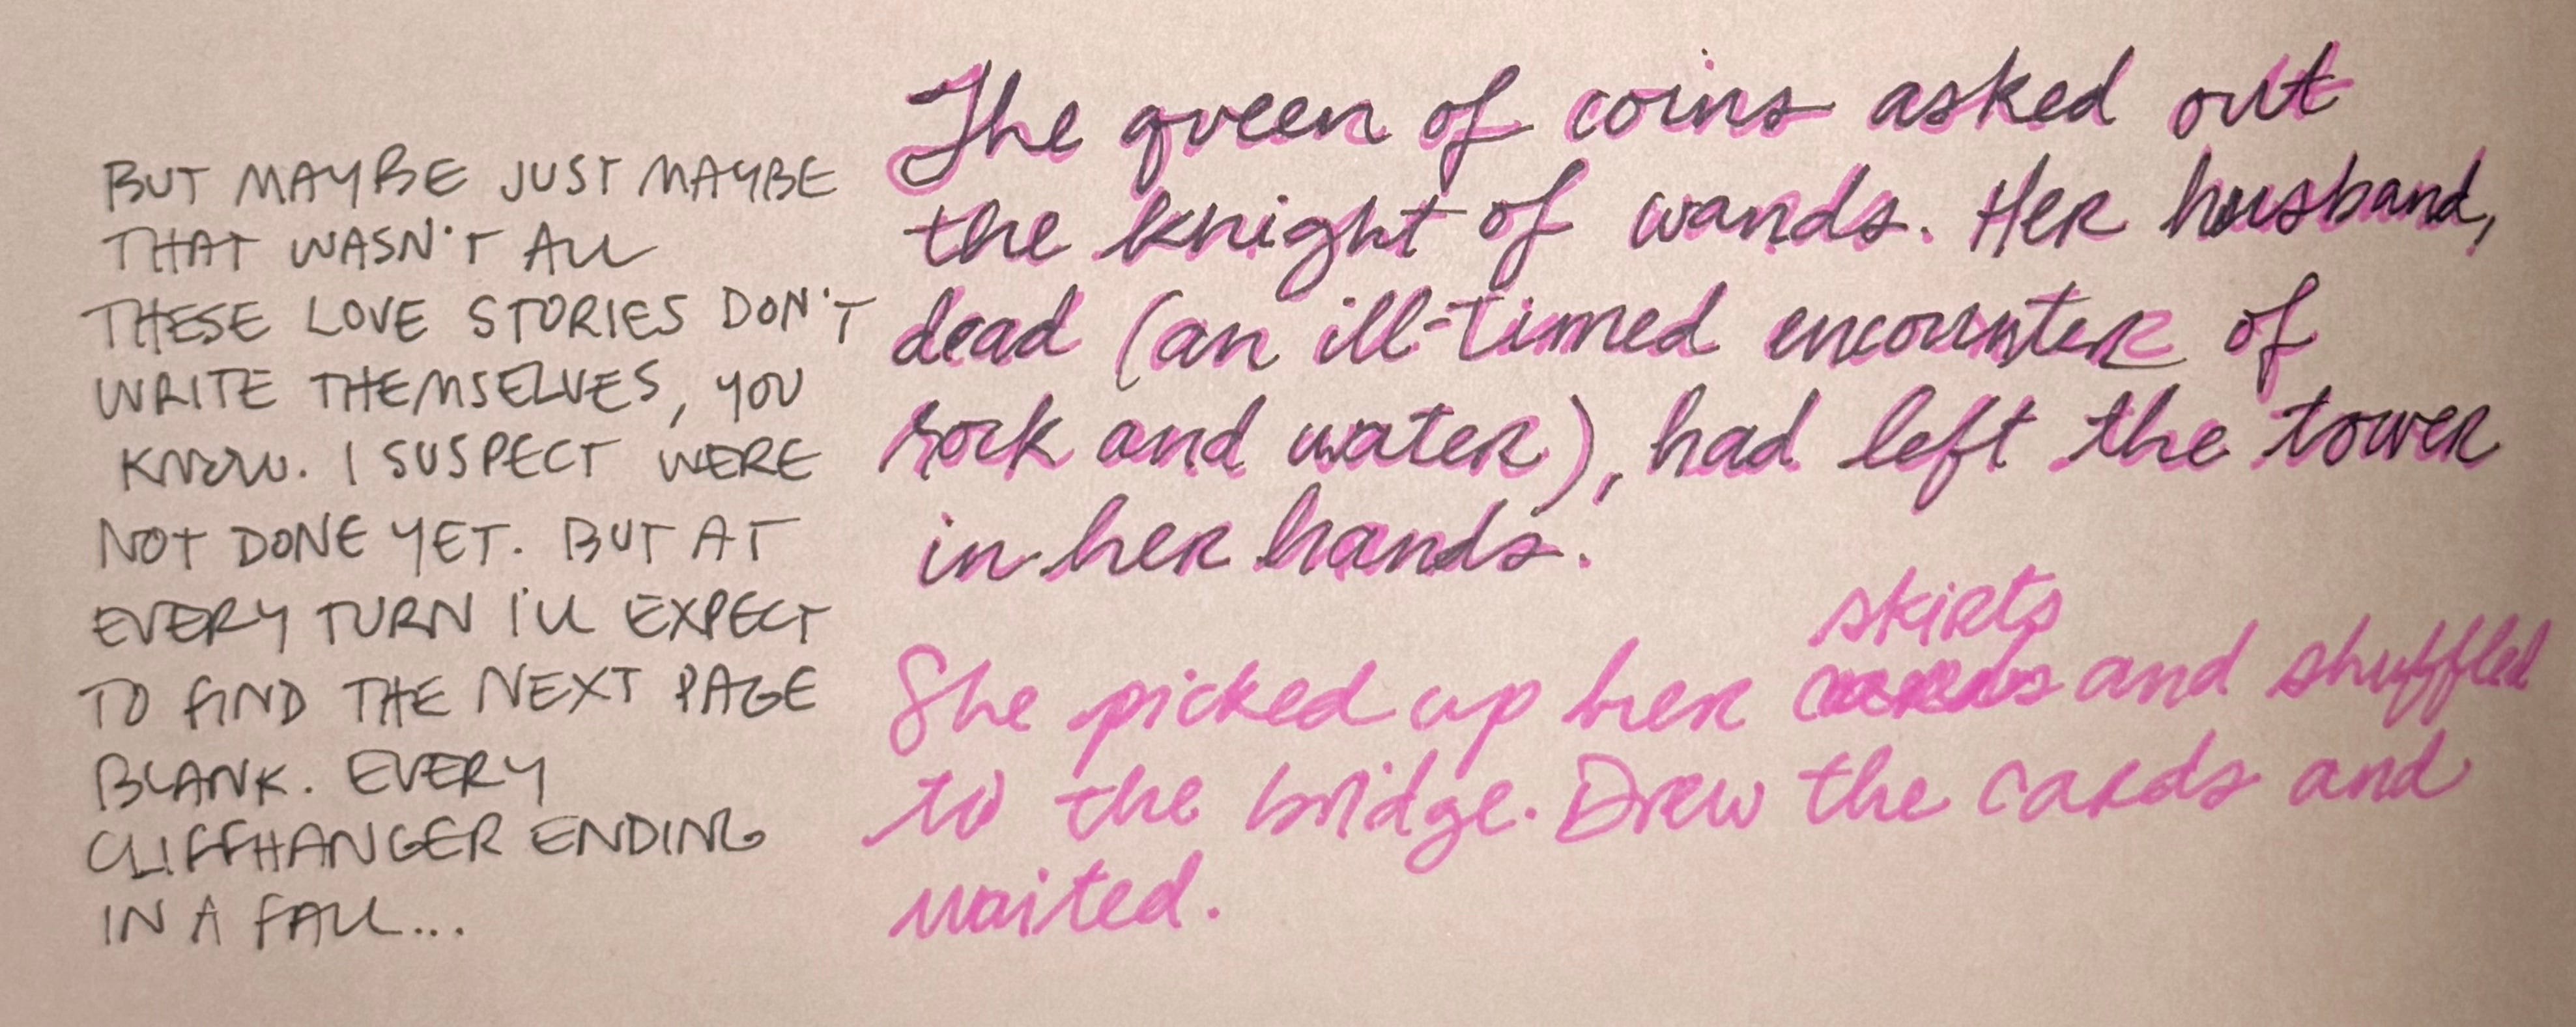 BUT MAYBE JUST MAYBE
THAT WASN'T ALL
THESE LOVE STORIES DON'T
WRITE THEMSELVES, YOU
KNOW. I SUSPECT WERE
NOT DONE YET. BUT AT
EVERY TURN I'LL EXPECT
TO FIND THE NEXT PAGE
BLANK. EVERY
CLIFFHANGER ENDING
IN A FALL...
The queen of coins asked out
the knight of wands. Her husband,
dead (an ill-timed encounter of
rock and water), had left the tower
in her hands.
skirts
She picked up her cards and shuffled
to the bridge. Drew the cards and
waited.